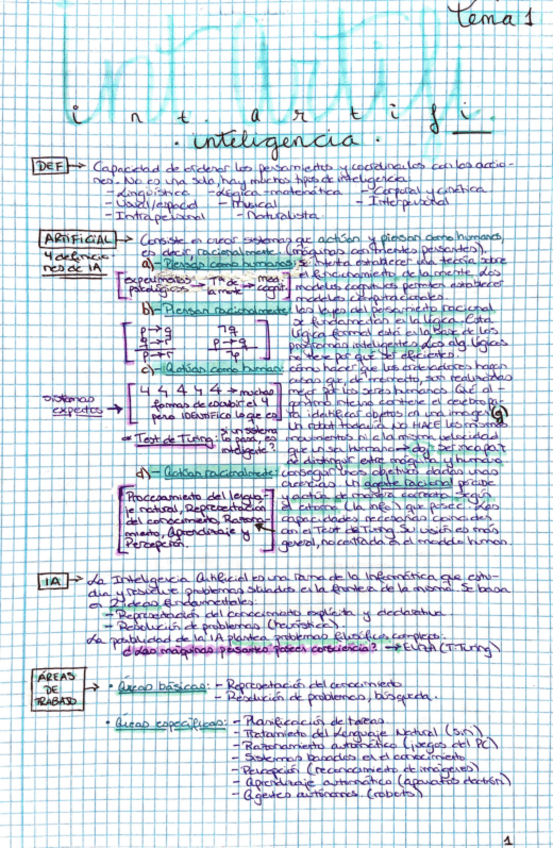 Tema 1
int. artifi.
· inteligencia ·
DEF → Capacidad de ordenar los pensamientos y coordinarlos con las accio-
nes. No es una sola, hay muchos tipos de inteligencia:
- Lingüística - Lógica-matemática - Corporal y cinética
- Visual/espacial - Musical - Interpersonal
- Intrapersonal - Naturalista
ARTIFICIAL → Consiste en crear sistemas que actúan y piensan como humanos,
es decir, racionalmente (máquinas con mentes pensantes).
4 definicio
nes de IA
a) - Piensan como humanos: se intenta establecer una teoría sobre
el funcionamiento de la mente. Los
modelos cognitivos permiten establecer
modelos computacionales.
[experimentos psicológicos → Tª de la mente → mod. cognit.]
b) - Piensan racionalmente: las leyes del pensamiento racional
se fundamentan en la lógica. Esta
lógica formal está en la base de los
programas inteligentes. Los alg. lógicos
no tiene por qué ser eficientes.
p→q ¬q
q→r p→q
p→r ¬p
c) - Actúan como humanos: cómo hacer que los ordenadores hagan
cosas que, de momento, son realizadas
mejor por los seres humanos. Qué al-
goritmo interno contiene el cerebro pa-
ra identificar objetos en una imagen
un robot todavía NO HACE los mismos
movimientos ni a la misma velocidad
que un ser humano
sistemas
expertos →
4 4 4 4 4 → muchas
formas de escribir el 4
pero IDENTIFICO lo que es
→ Test de Turing: si un sistema
lo pasa, es
inteligente?
d) - Actúan racionalmente: conseguir unos objetivos dadas unas
creencias. Un agente racional percibe
y actúa de manera correcta según
el entorno (la info.) que posee. Las
capacidades necesarias coinciden
con el Test de Turing. Su visión es más
general, no centrada en el modelo humano.
Procesamiento del lengua-
je natural, Representación
del conocimiento, Razona-
miento, Aprendizaje y
Percepción.
IA → La Inteligencia Artificial es una rama de la Informática que estu-
dia y resuelve problemas situados en la frontera de la misma. Se basa
en 2 ideas fundamentales:
- Representación del conocimiento explícita y declarativa
- Resolución de problemas (heurística).
La posibilidad de la IA plantea problemas filosóficos complejos:
¿Las máquinas pensantes poseen consciencia? → ELIZA (T. Turing)
ÁREAS
DE
TRABAJO
→ · Áreas básicas: - Representación del conocimiento
- Resolución de problemas, búsqueda.
· Áreas específicas: - Planificación de tareas
- Tratamiento del Lenguaje Natural (Siri)
- Razonamiento automático (juegos del PC)
- Sistemas basados en el conocimiento
- Percepción (reconocimiento de imágenes)
- Aprendizaje automático
- Agentes autónomos (robots)
1